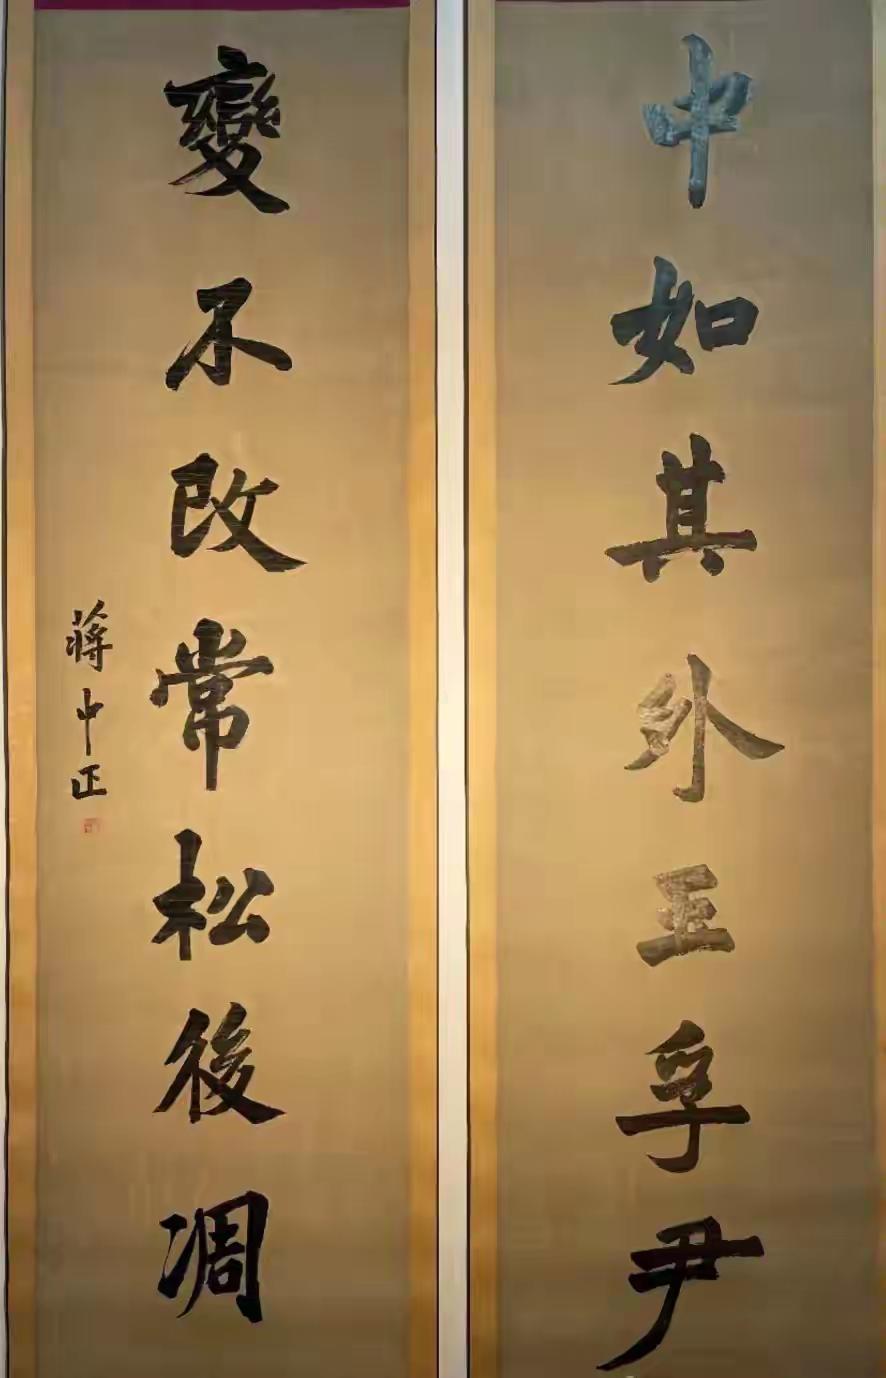 中如其外玉孚尹
變不改常松後凋
蔣中正